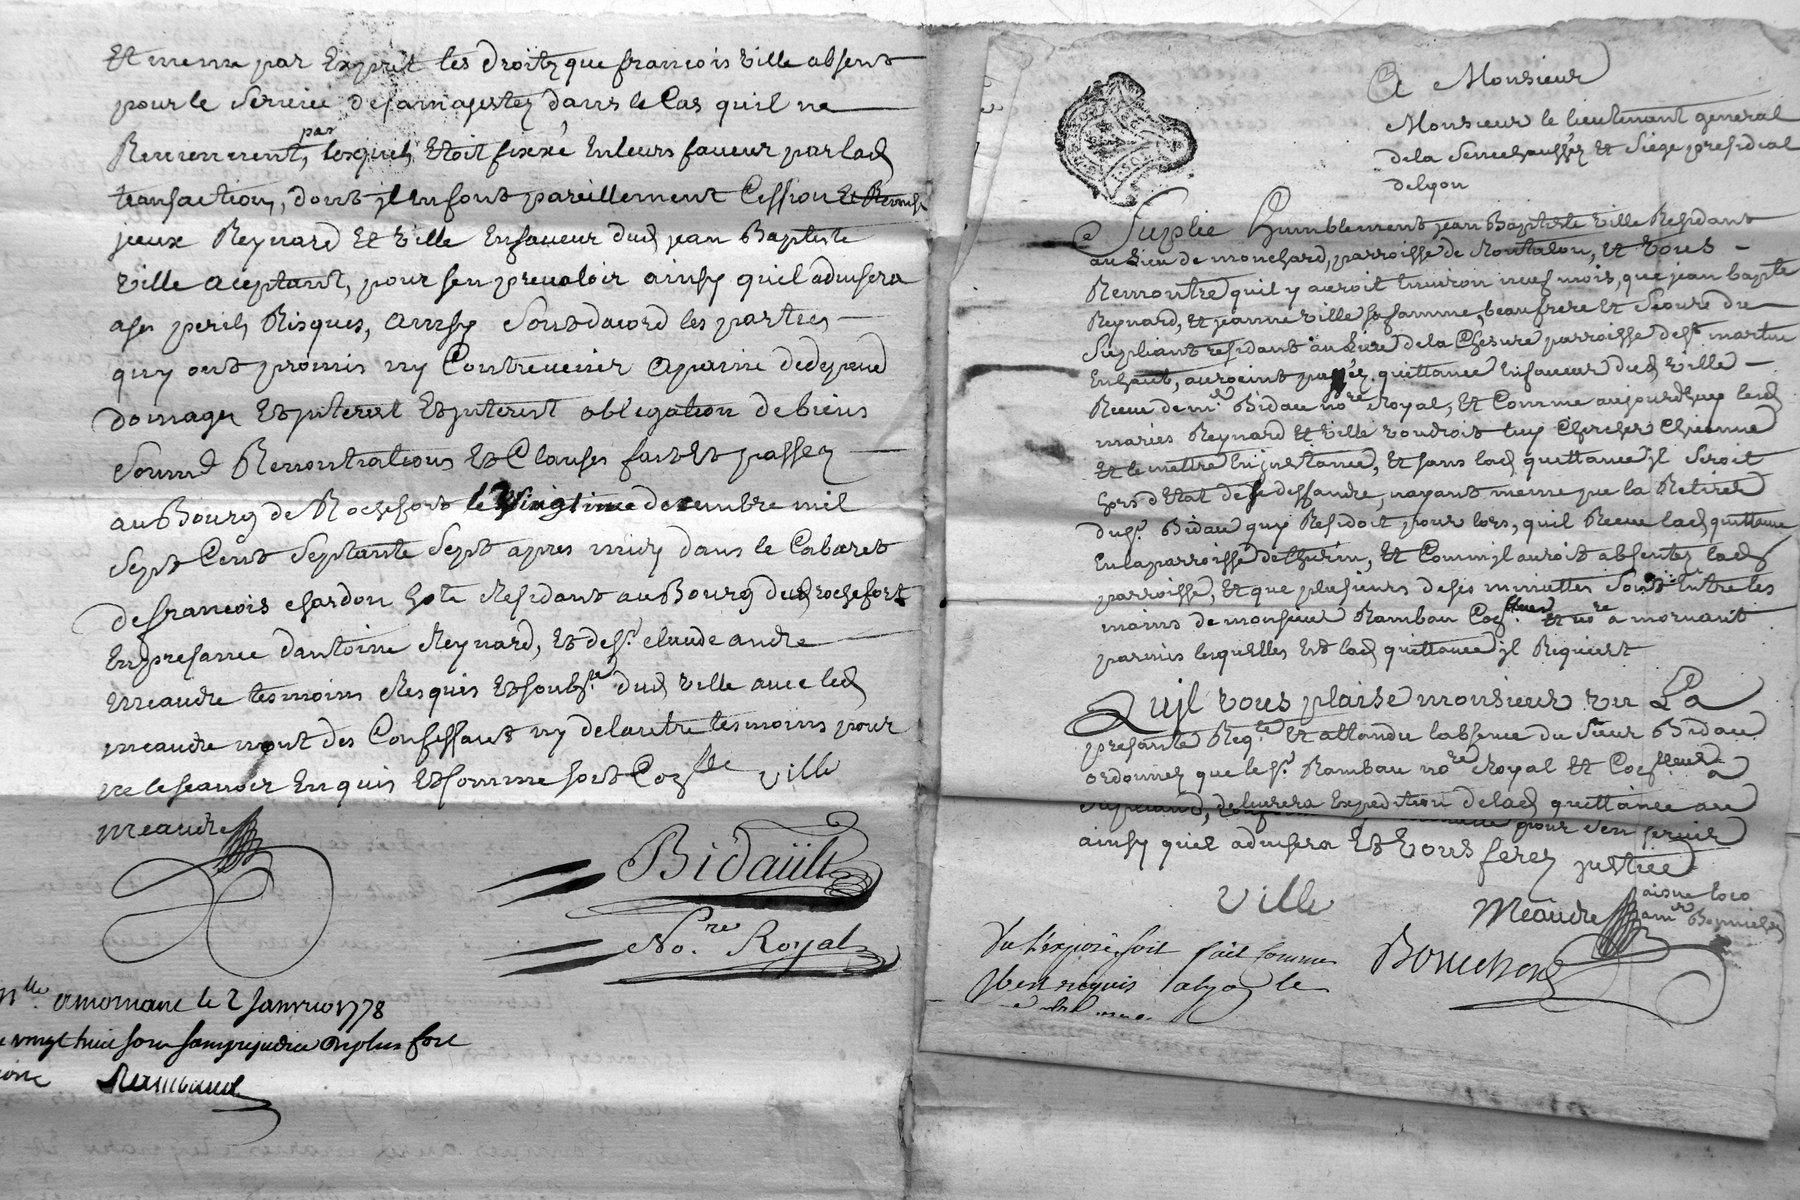 Et meme par Exprèt les droitz que francois ville absent
pour le Service de samajestez dans le Cas quil ne
Revienerent, par lesquels Etoit fixxé Enleurs faveur par lad
transaction, dont jls enfont pareillement Cession Et Remise
jceux Reynard Et ville Enfaveur dud jean Baptiste
ville aceptant, pour sen prevaloir ainsy quil advisera
ases perils Risques, ainsy Sont dacord les parties
quy ont promis ny Contrevenir apeine de depend
domages Et jnterest Et jnterest obligation de biens
Soumd Renontiations Et Clauses fait Et passez
au Bourg de Rochefort le Vingtime decembre mil
Sept Cent Septante Sept apres midy dans le Cabaret
defrancois chardon hote Residant au Bourg dud rochefort
Enpresance dantoine Reynard, Et de Sr. claude andre
meaudre tesmoins Requis Et soubs.né dud ville avec led
meaudre non des Confessant ny de lautre tesmoins pour
ne lescavoir Enquis Et somme sont Coz.lle ville
meaudre
Bidaült
No.re Royal
n.lle a mornant le 2 Janvier 1778
vingt huit sous sans prejudice du plus fort
Rambaud
A Monsieur
Monsieur le lieutenant general
dela Senechaussez Et Siege presidial
delyon
Suplie Humblement jean Baptiste ville Residant
au Lieu de monchard, parroisse de Montalon, Et vous
Remontre quil y auroit Environ neuf mois, que jean bapte
Reynard, Et jeanne ville sa famme, beaufrere Et Seoure du
Supliant residant au Lieu de la Chesure parroisse de St. martin
Enhaut, auroint passéz quittance Enfaveur dud ville
Receu de m.e Bidau no.re Royal, Et Comme aujourdhuy lesd
mariés Reynard Et ville voudroit luy Chercher Chicanne
Et le mettre Enjnstance, Et sans lad quittance jl Seroit
hors d'Etat de se deffandre, nayant meme pue la Retirer
du Sr. Bidau quy Residoit pour lors, quil Receu lad quittance
En laparroisse dethurin, Et Comm jl auroit absentez lad
parroisse, Et que plusieurs deses minuttes Sont Entre les
mains de monsieur Rambau Con.lleur Et no.re a mornant
parmis lesquelles Est lad quittance jl Requiert
Qujl vous plaise monsieur vu La
presante Req.te Et attandu labsence du Sieur Bidau
ordonner que le Sr. Rambau no.re Royal Et Con.lleur a
delivrera Expedition delad quittance au
pour Sen servir
ainsy quil advisera Et vous ferez justice
ville
Meaudre aisne loco
am.e
Bouchon
Vu l'exposé soit fait comme
jl est requis a lyon le